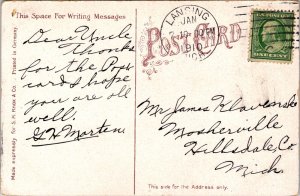 This Space For Writing Messages
LANSING
JAN
MICH.
POSTCARD
Dear Uncle
thanks
for the Post
card & hope
you are all
well.
G H Morten
Mr James Klavenske
Mosherville
Hillsdale, Co
Mich
This side for the Address only.
Made expressly for S.H. Knox & Co.
Printed in Germany.